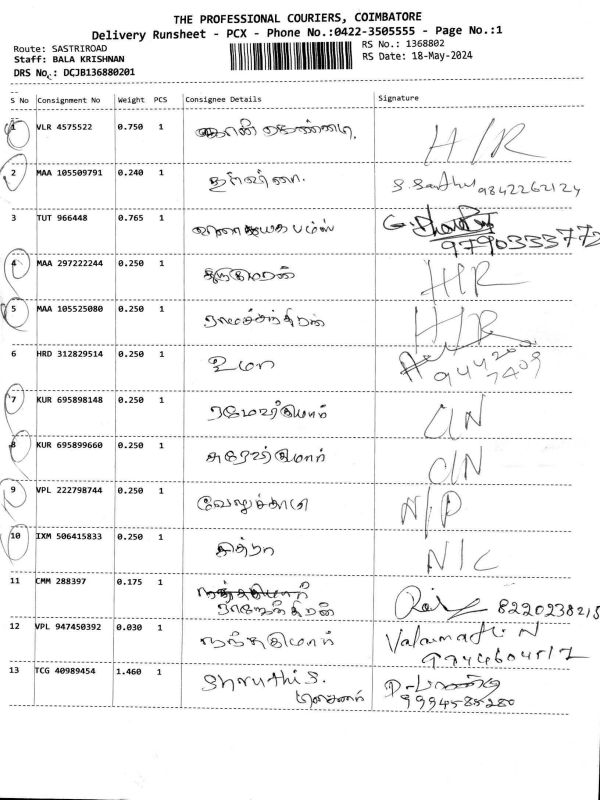 THE PROFESSIONAL COURIERS, COIMBATORE
Delivery Runsheet - PCX - Phone No.:0422-3505555 - Page No.:1
Route: SASTRIROAD
RS No.: 1368802
Staff: BALA KRISHNAN
RS Date: 18-May-2024
DRS No.: DCJB136880201
S No Consignment No Weight PCS Consignee Details Signature
1 VLR 4575522 0.750 1 H/R
2 MAA 105509791 0.240 1 9842262124
3 TUT 966448 0.765 1
9790333772
4 MAA 297222244 0.250 1 H/R
5 MAA 105525080 0.250 1 ராமச்சந்திரன் H/R
6 HRD 312829514 0.250 1 உமா
7 KUR 695898148 0.250 1 ரமேஷ்குமார்
8 KUR 695899660 0.250 1 சுரேஷ்குமார்
9 VPL 222798744 0.250 1 வேலுச்சாமி N/P
10 IXM 506415833 0.250 1 சித்ரா N/C
11 CMM 288397 0.175 1
ராஜேந்திரன்
12 VPL 947450392 0.030 1 நந்தகுமார் Valarmathi N
13 TCG 40989454 1.460 1 Shruthi S.
9994585280